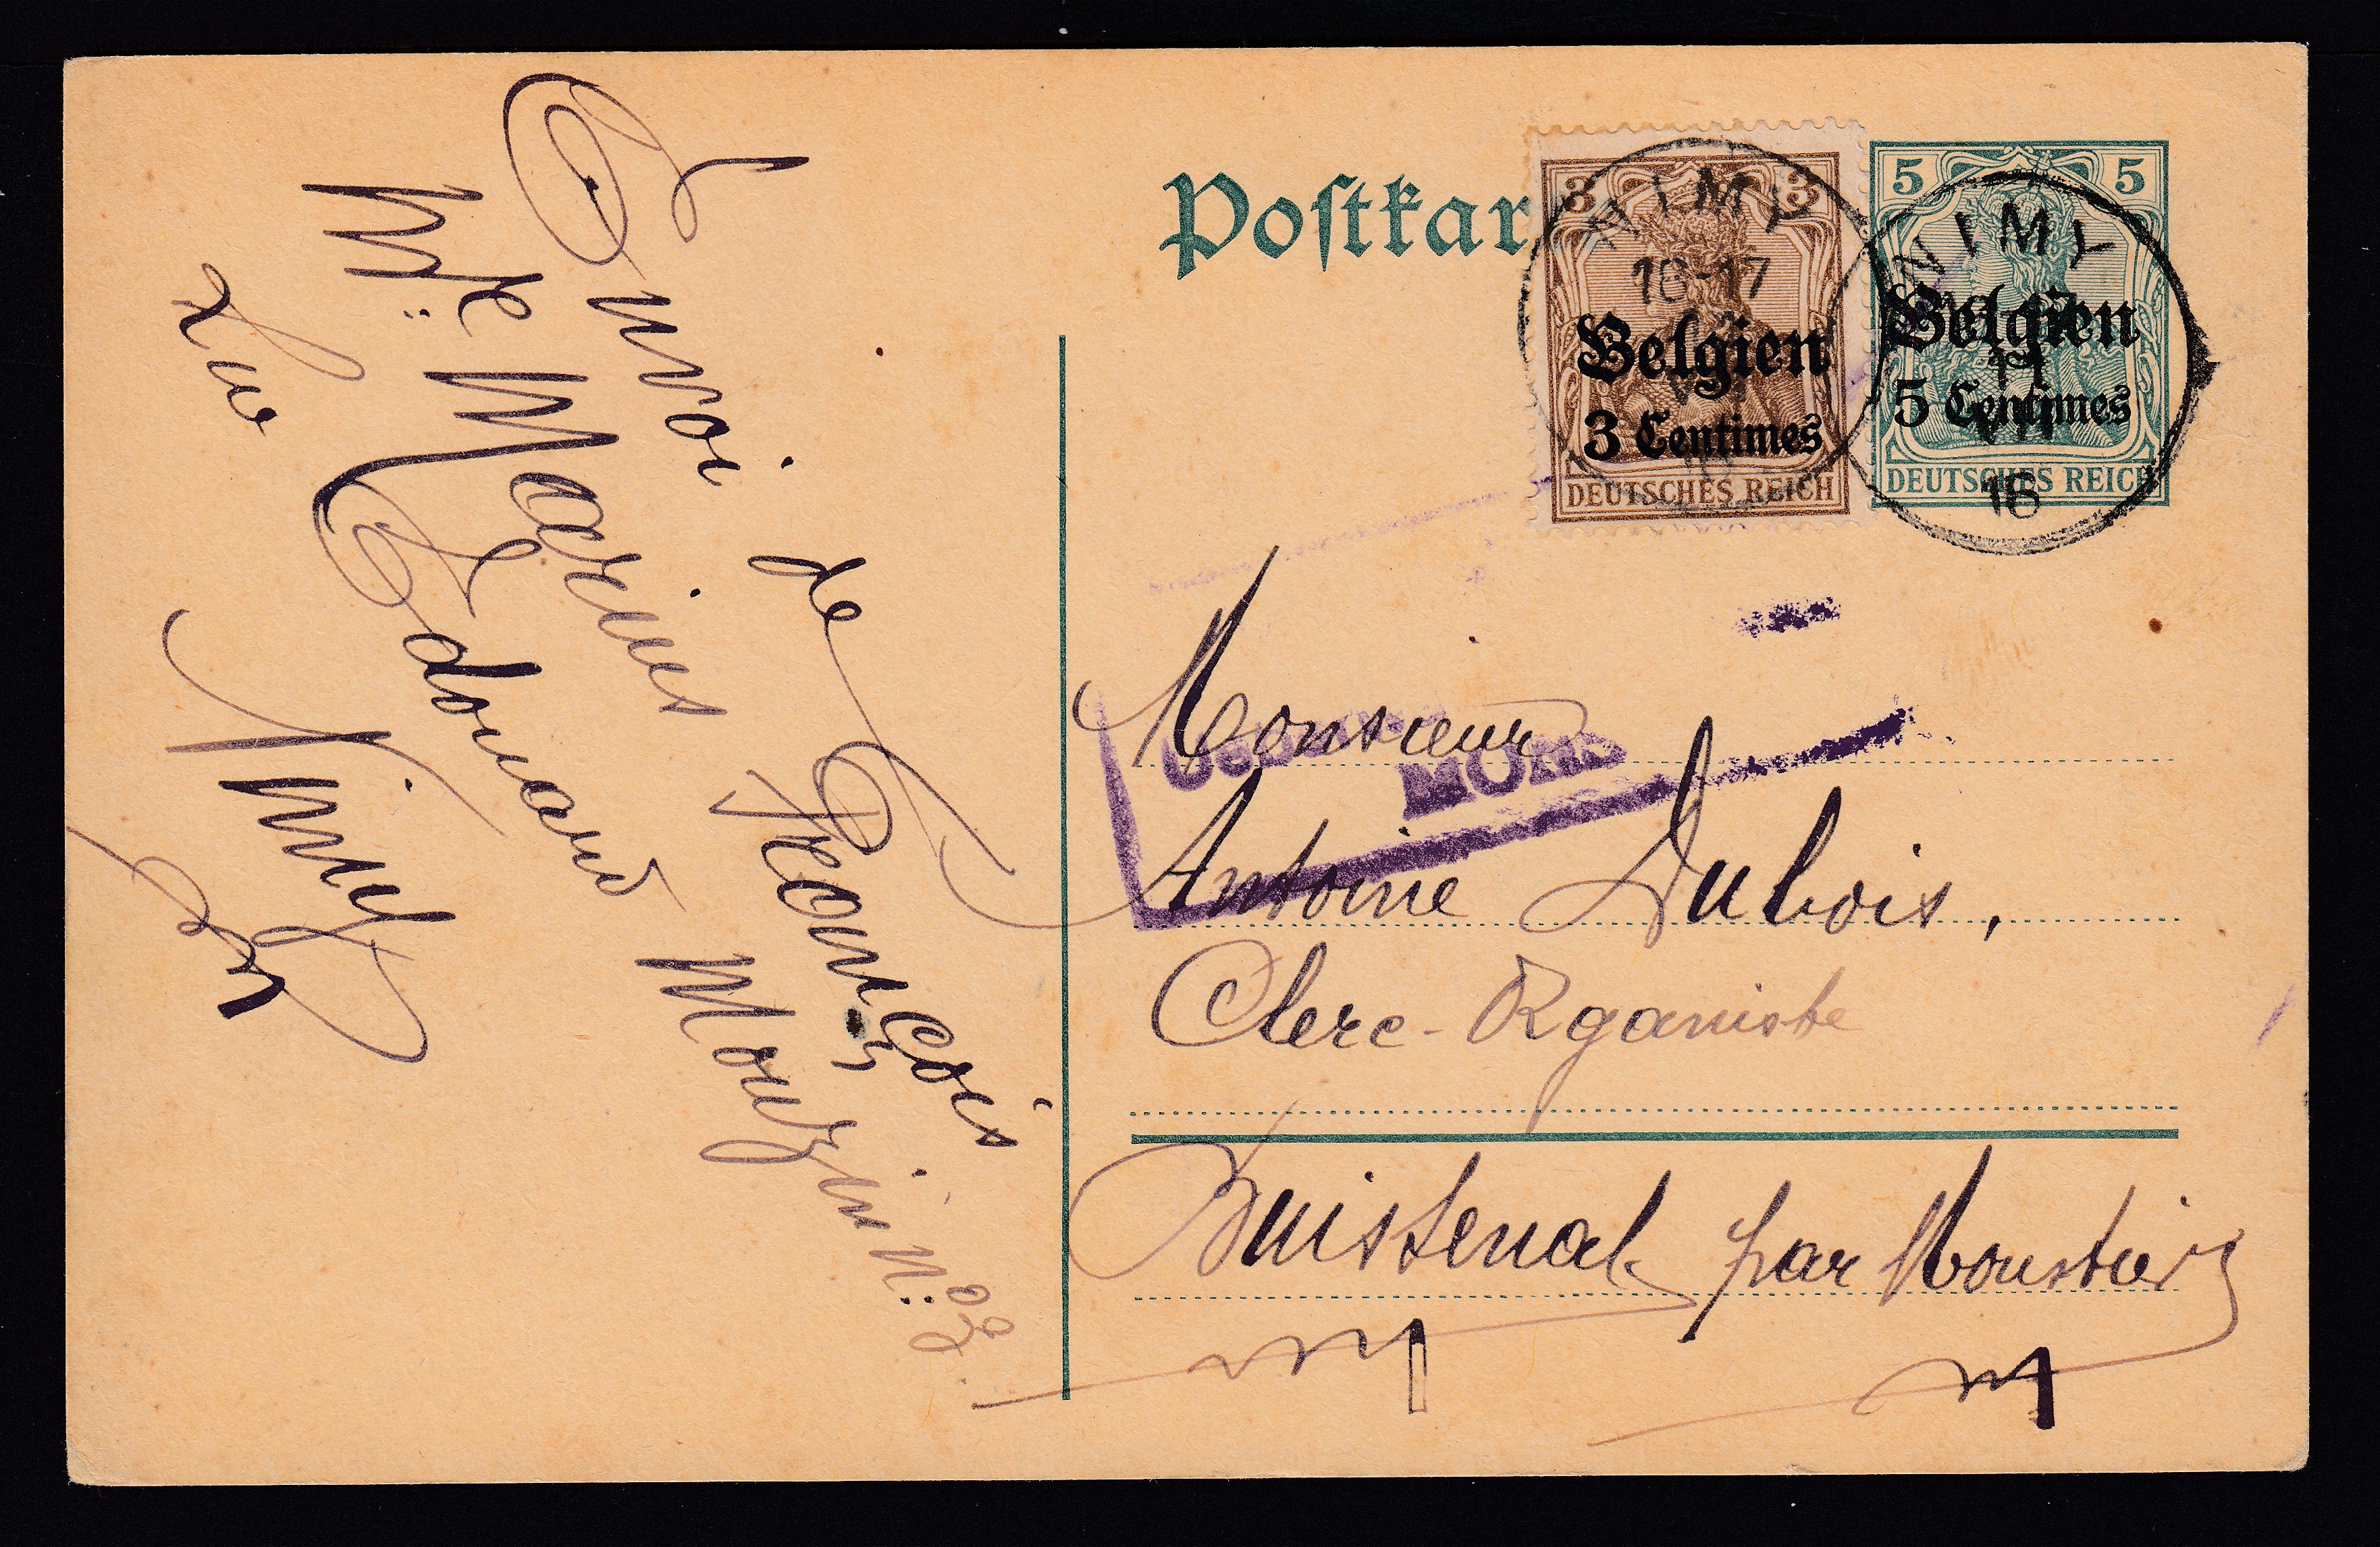 Envoi de François
Mle Marius
Rue Edouard Mouzin N:º 3.
Nimy
Postkar
3 3
Belgien
3 Centimes
DEUTSCHES REICH
NIMY
16-17
5 5
Belgien
5 Centimes
DEUTSCHES REICH
NIMY
11
VII
16
MONS
Monsieur
Antoine Dubois,
Clerc-Organiste
Buissenal par Moustier